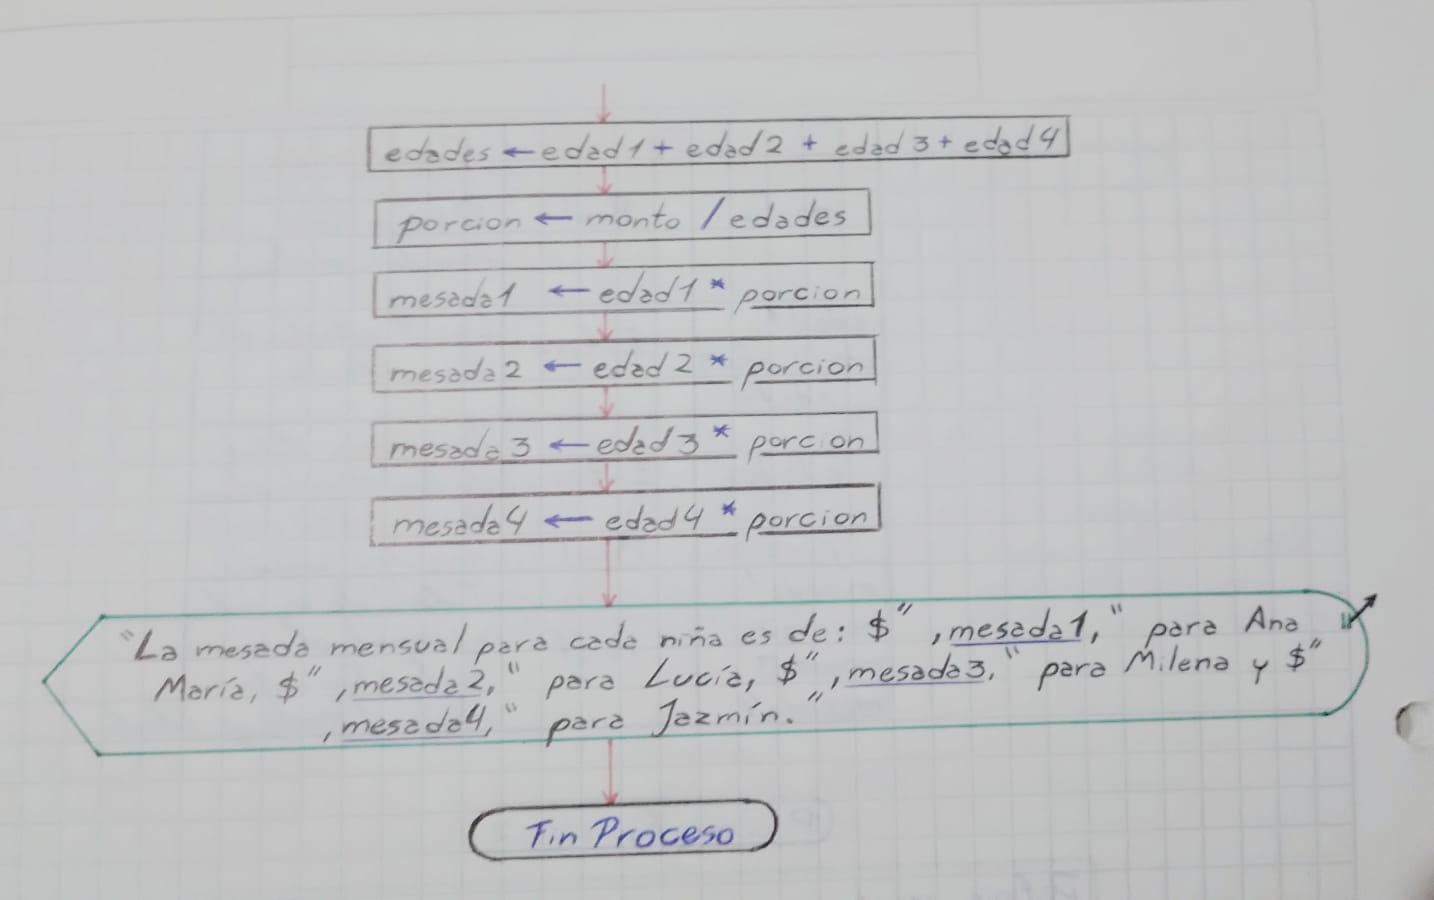 edades ← edad1 + edad2 + edad3 + edad4
porcion ← monto / edades
mesada1 ← edad1 * porcion
mesada2 ← edad2 * porcion
mesada3 ← edad3 * porcion
mesada4 ← edad4 * porcion
"La mesada mensual para cada niña es de: $", mesada1, " para Ana
María, $", mesada2, " para Lucía, $", mesada3, " para Milena y $"
, mesada4, " para Jazmín."
Fin Proceso